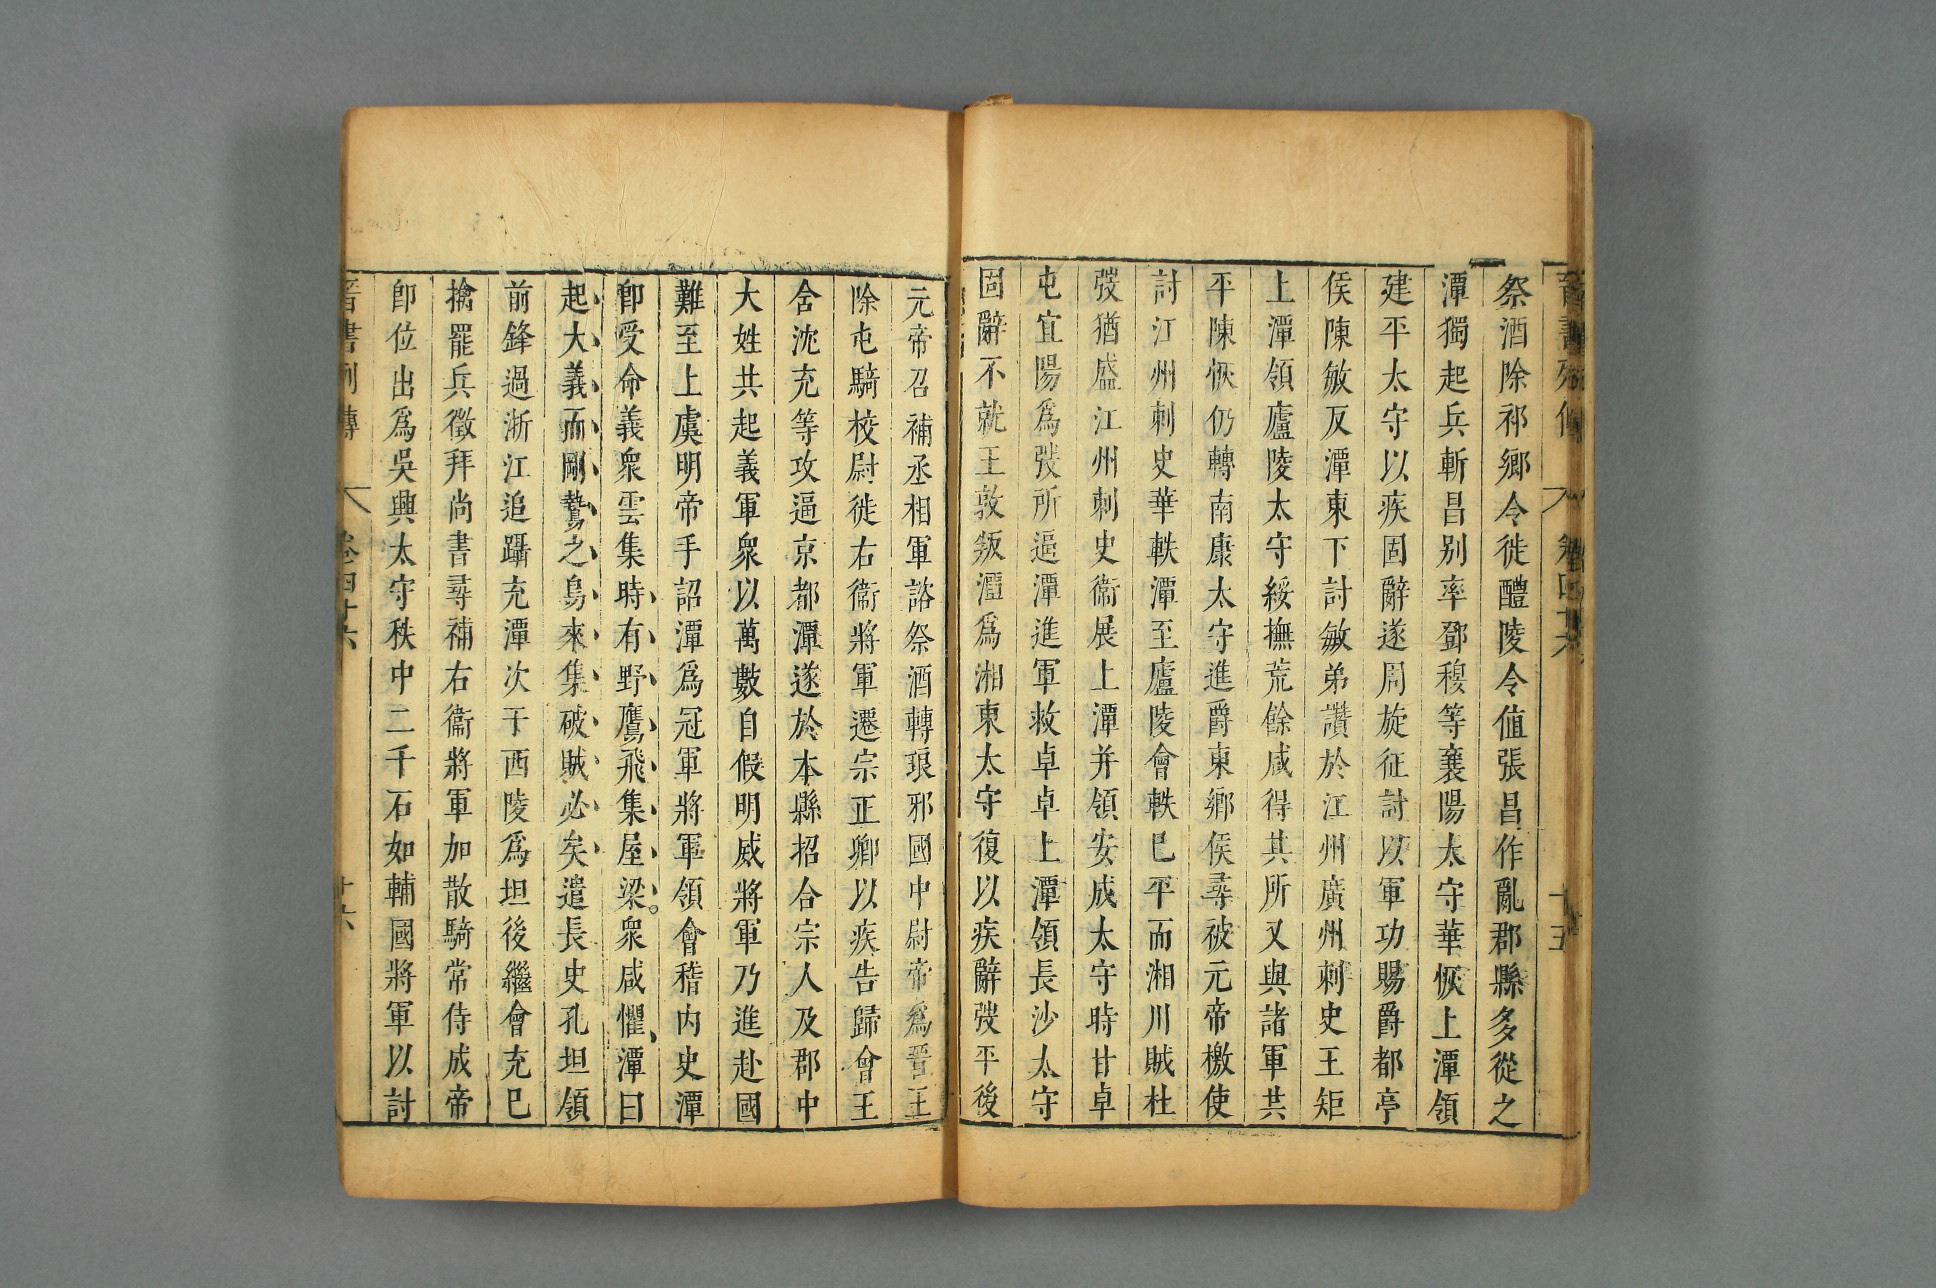 晉書列傳 卷四十六 十五
祭酒除祁鄉令徙醴陵令值張昌作亂郡縣多從之
潭獨起兵斬昌别率鄧穆等襄陽太守華恢上潭領
建平太守以疾固辭遂周旋征討以軍功賜爵都亭
侯陳敏反潭東下討敏弟讚於江州廣州刺史王矩
上潭領廬陵太守綏撫荒餘咸得其所又與諸軍共
平陳恢仍轉南康太守進爵東鄉侯尋被元帝檄使
討江州刺史華軼潭至廬陵會軼已平而湘川賊杜
弢猶盛江州刺史衛展上潭并領安成太守時甘卓
屯宜陽爲弢所逼潭進軍救卓卓上潭領長沙太守
固辭不就王敦叛潭爲湘東太守復以疾辭弢平後
元帝召補丞相軍諮祭酒轉琅邪國中尉帝爲晉王
除屯騎校尉徙右衛將軍遷宗正卿以疾告歸會王
含沈充等攻逼京都潭遂於本縣招合宗人及郡中
大姓共起義軍衆以萬數自假明威將軍乃進赴國
難至上虞明帝手詔潭爲冠軍將軍領會稽内史潭
卽受命義衆雲集時有野鷹飛集屋梁。衆咸懼、潭曰
起大義而剛鷙之鳥來集破賊必矣遣長史孔坦領
前鋒過浙江追躡充潭次于西陵爲坦後繼會充已
擒罷兵徵拜尚書尋補右衛將軍加散騎常侍成帝
卽位出爲吳興太守秩中二千石如輔國將軍以討
晉書列傳 卷四十六 十六